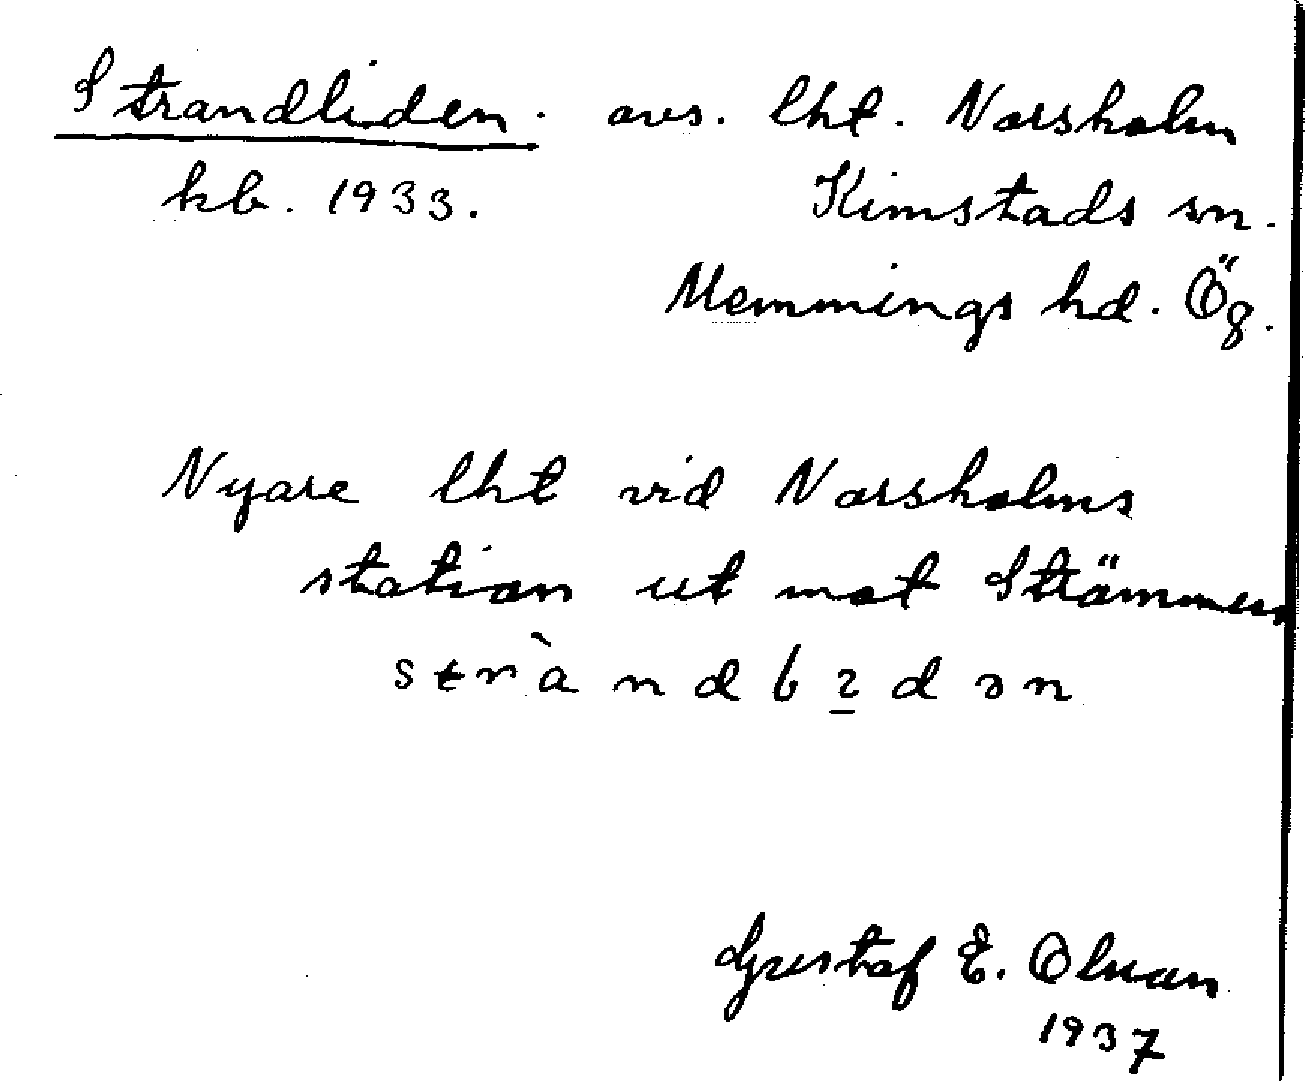 Strandliden. avs. lht. Norsholm
kb. 1933. Kimstads sn.
Memmings hd. Ög.
Nyare lht vid Norsholms
station ut mot Strömmen
stràndlꙇdən
Gustaf E. Olsson
1937